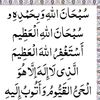 سُبْحَانَ اللّٰهِ وَبِحَمْدِهٖ
سُبْحَانَ اللّٰهِ الْعَظِيْمِ
أَسْتَغْفِرُ اللّٰهَ الْعَظِيْمَ
الَّذِيْ لَا إِلٰهَ إِلَّا هُوَ
الْحَيُّ الْقَيُّوْمُ وَأَتُوْبُ إِلَيْهِ